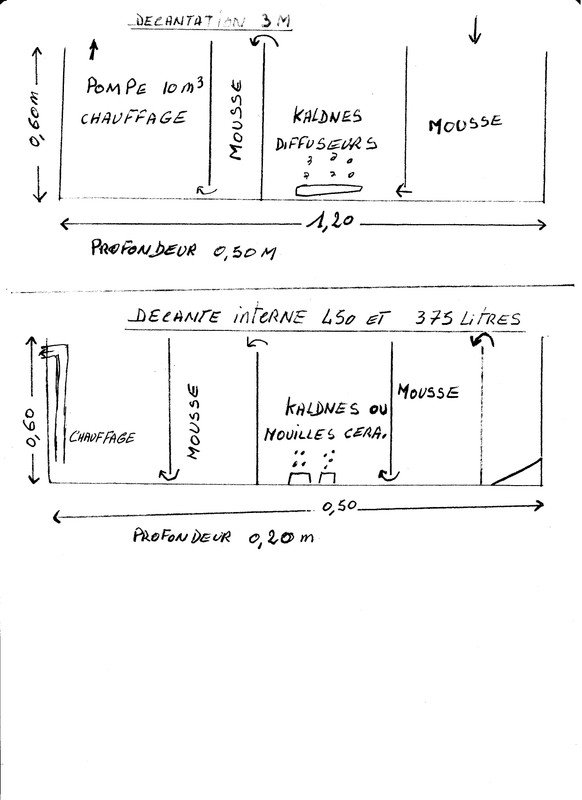 DECANTATION 3 M
0,60M
POMPE 10m³
CHAUFFAGE
MOUSSE
KALDNES
DIFFUSEURS
MOUSSE
1,20
PROFONDEUR 0,50 M
DECANTE interne 450 ET 375 LITRES
0,60
CHAUFFAGE
MOUSSE
KALDNES OU
NOUILLES CERA.
MOUSSE
0,50
PROFONDEUR 0,20 m